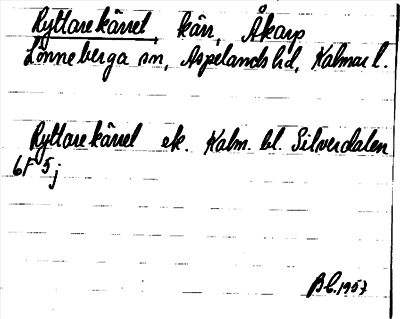 Ryttarekärret, kärr, Åkarp
Lönneberga sn, Aspelands hd, Kalmar l.
Ryttarekärret ek. Kalm. bl. Silverdalen
6F 5j
BL.1957